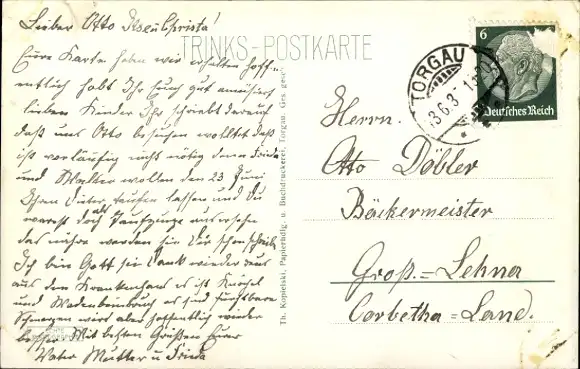 Lieber Otto Ilse u Christa!
Eure Karte haben wir erhalten hoff-
entlich habt Ihr Euch gut amüsiert
lieben Kinder Ihr schreibt darauf
daß uns Otto besuchen wollte daß
ist vorläufig nicht nötig denn Frida
und Walter wollen den 23 Juni
Ihren Dieter taufen lassen und Du
warst doch als Taufzeuge ausersehn
das nähre werden sie Dir schon schreiben
Ich bin Gott sei Dank wieder raus
aus dem Krankenhaus es ist Knöchel
und Wadenbeinbruch es sind furchtbare
Schmerzen wird aber hoffentlich wieder
besser. Mit besten Grüßen Euer
Vater Mutter u Frieda
TRINKS-POSTKARTE
Th. Kopielski, Papierhdlg. u. Buchdruckerei, Torgau. Ges. gesch.
6
Deutsches Reich
TORGAU
Herrn.
Otto Döbler
Bäckermeister
Groß.=Lehna
Corbetha=Land.